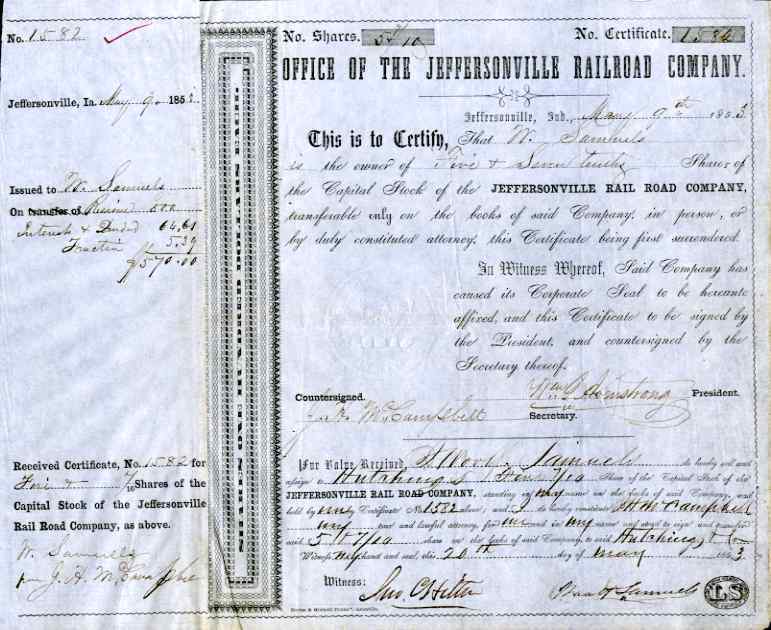 No. 1582
Jeffersonville, Ia. May 9. 1853
Issued to W. Samuels
On transfer of 500
Interest & 64.61
5.39
$570.00
Received Certificate, No. 1582 for
Five & 7/10 Shares of the
Capital Stock of the Jeffersonville
Rail Road Company, as above.
W. Samuels
J. H. McCampbell
No. Shares. 5 7/10 No. Certificate. 1582
OFFICE OF THE JEFFERSONVILLE RAILROAD COMPANY.
Jeffersonville, Ind., May 9th 1853
This is to Certify, That W. Samuels
is the owner of Five & Seven tenths Shares of
the Capital Stock of the JEFFERSONVILLE RAIL ROAD COMPANY,
transferable only on the books of said Company, in person, or
by duly constituted attorney, this Certificate being first surrendered.
In Witness Whereof, Said Company has
caused its Corporate Seal to be hereunto
affixed, and this Certificate to be signed by
the President, and countersigned by the
Secretary thereof.
Countersigned. Armstrong President.
McCampbell Secretary.
For Value Received, I Samuels do hereby sell and
assign to Hutchings 5 7/10 Share of the Capital Stock of the
JEFFERSONVILLE RAIL ROAD COMPANY, standing in my name on the books of said Company, and
held by my Certificate No. 1582 above, and I do hereby constitute McCampbell
my true and lawful attorney, for me and in my name and stead to sign and transfer
said 5 & 7/10 share on the books of said Company, to said Hutchings & Co
Witness my hand and seal, this 20th day of May 1853
Witness:
Samuels LS